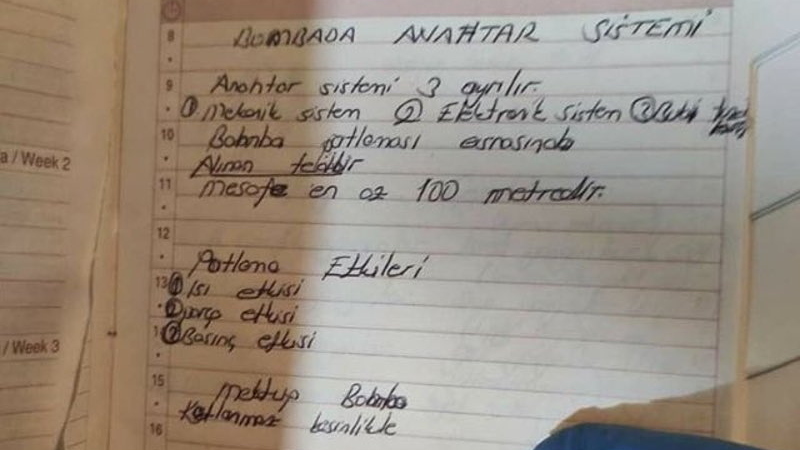 BOMBADA ANAHTAR SİSTEMİ
Anahtar sistemi 3 ayrılır.
① Mekanik sistem ② Elektronik sistem ③
Bobmba patlaması esnasında
Alınan tedbir
Mesafe en az 100 metredir.
Patlama Etkileri
① Isı etkisi
② parça etkisi
③ Basınç etkisi
Mektup Bobmba
Katlanmaz kesinlikle
8
9
10
11
12
13
14
15
16
a / Week 2
/ Week 3